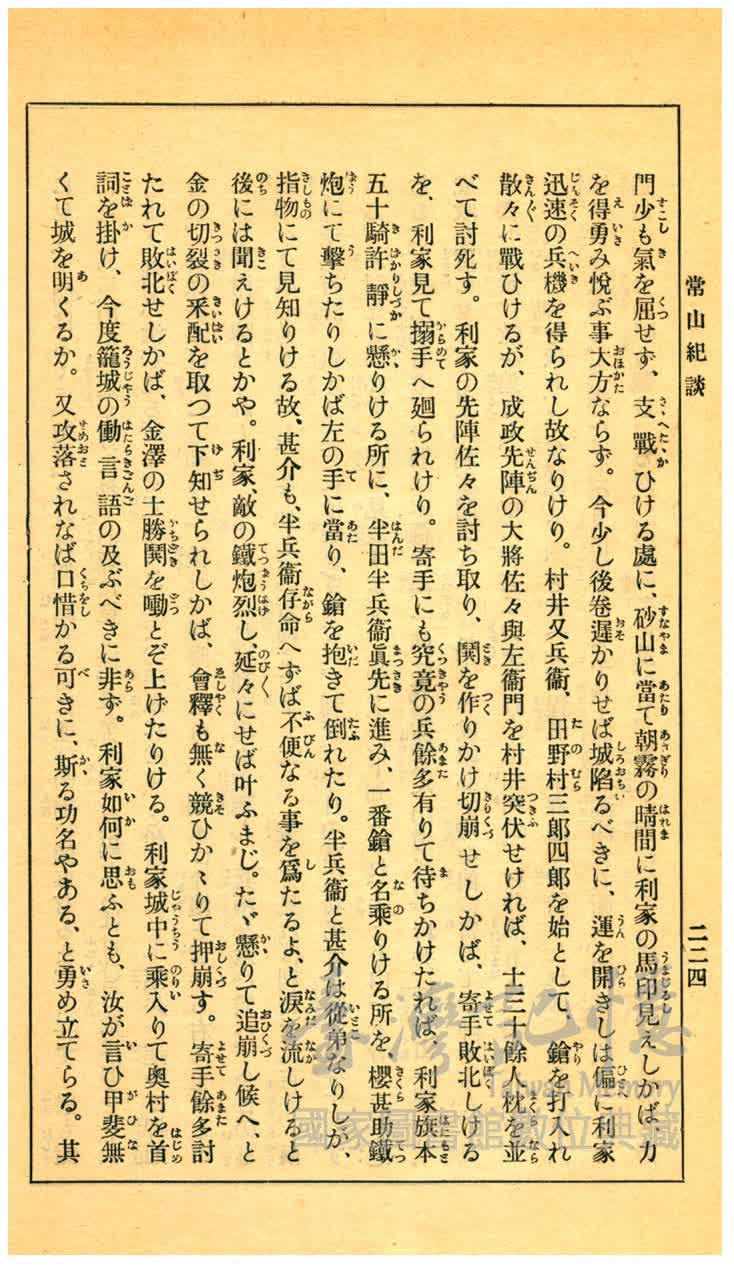 常山紀談
二二四
門少も氣を屈せず、支戰ひける處に、砂山に當て朝霧の晴間に利家の馬印見えしかば、力
を得勇み悅ぶ事大方ならず。今少し後卷遲かりせば城陷るべきに、運を開きしは偏に利家
迅速の兵機を得られし故なりけり。村井又兵衞、田野村三郞四郞を始として、鎗を打入れ
散々に戰ひけるが、成政先陣の大將佐々與左衞門を村井突伏せければ、士三十餘人枕を並
べて討死す。利家の先陣佐々を討ち取り、鬨を作りかけ切崩せしかば、寄手敗北しける
を、利家見て搦手へ廻られけり。寄手にも究竟の兵餘多有りて待ちかけたれば、利家旗本
五十騎許靜に懸りける所に、半田半兵衞眞先に進み、一番鎗と名乘りける所を、櫻甚助鐵
炮にて擊ちたりしかば左の手に當り、鎗を抱きて倒れたり。半兵衞と甚介は從弟なりしが、
指物にて見知りける故、甚介も、半兵衞存命へずば不便なる事を爲たるよ、と淚を流しけると
後には聞えけるとかや。利家、敵の鐵炮烈し、延々にせば叶ふまじ。たゞ懸りて追崩し候へ、と
金の切裂の釆配を取つて下知せられしかば、會釋も無く競ひかゝりて押崩す。寄手餘多討
たれて敗北せしかば、金澤の士勝鬨を噇とぞ上げたりける。利家城中に乘入りて奧村を首
詞を掛け、今度籠城の働言語の及ぶべきに非ず。利家如何に思ふとも、汝が言ひ甲斐無
くて城を明くるか。又攻落されなば口惜かる可きに、斯る功名やある、と勇め立てらる。其
臺灣記憶
Taiwan Memory
國家圖書館數位典藏